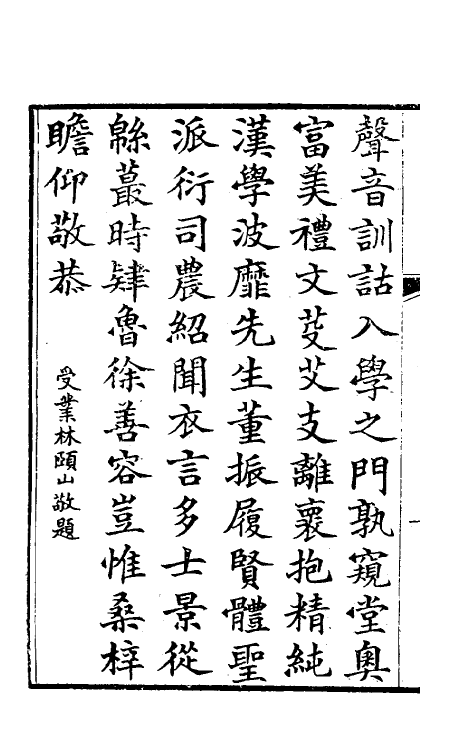 聲音訓詁入學之門孰窺堂奧
富美禮文芟艾支離褱抱精純
漢學波靡先生董振履賢體聖
派衍司農紹聞衣言多士景從
緜蕞時肄魯徐善容豈惟桑梓
瞻仰敬恭
受業林頤山敬題